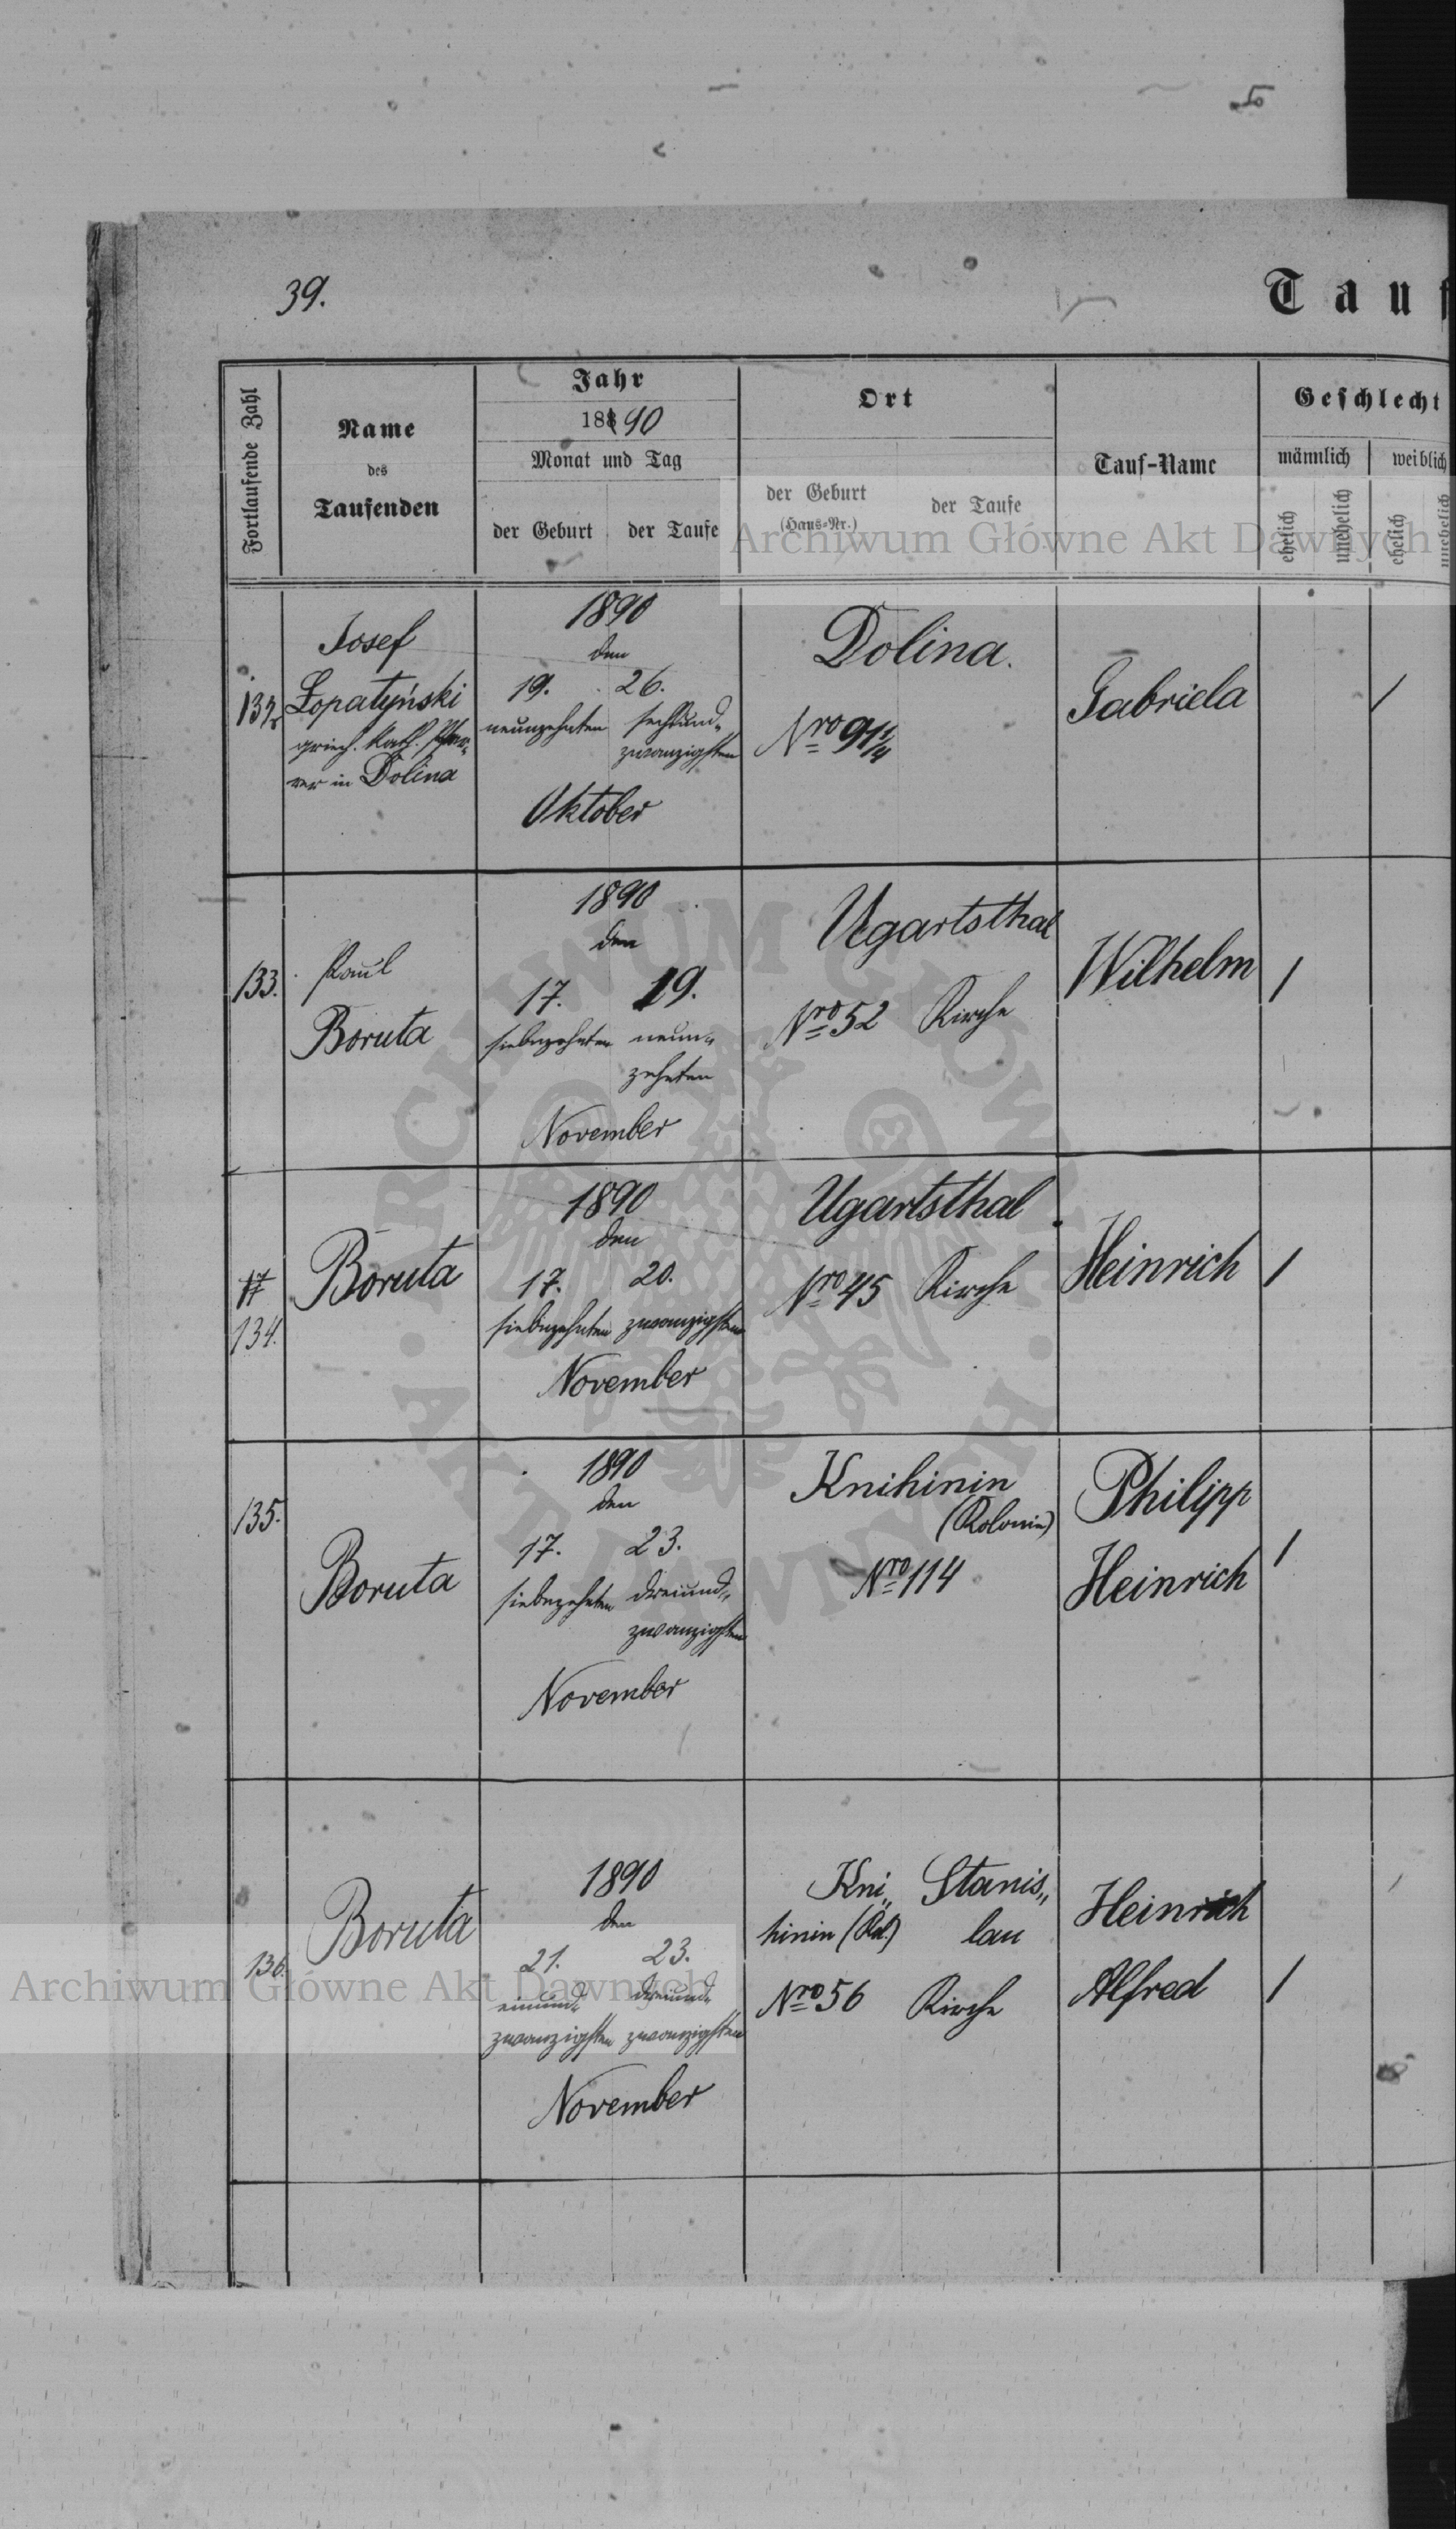 39.
Tauf
Fortlaufende Zahl
Name
des
Taufenden
Jahr
188 90
Monat und Tag
der Geburt
der Taufe
Ort
der Geburt
(Haus-Nr.)
der Taufe
Tauf-Name
Geschlecht
männlich
weiblich
ehelich
unehelich
ehelich
unehelich
Archiwum Główne Akt Dawnych
132
Josef
Łopatyński
griech. kath. Pfar-
rer in Dolina
1890
den
19. 26.
neunzehnten sechsund„
zwanzigsten
Oktober
Dolina.
Nro 91 1/4
Gabriela
/
133.
Paul
Boruta
1890
den
17. 19.
siebzehnten neun„
zehnten
November
Ugartsthal
Nro 52 Kirche
Wilhelm
/
134.
Boruta
1890
den
17. 20.
siebzehnten zwanzigsten
November
Ugartsthal
Nro 45 Kirche
Heinrich
/
135.
Boruta
1890
den
17. 23.
siebzehnten dreiund„
zwanzigsten
November
Knihinin
(Kolonie)
Nro 114
Philipp
Heinrich
/
136.
Boruta
1890
den
21. 23.
einund„ dreiund„
zwanzigsten zwanzigsten
November
Kni„ Stanis„
hinin (Kol.) lau
Nro 56 Kirche
Heinrich
Alfred
/
Archiwum Główne Akt Dawnych
ARCHIWUM GŁÓWNE
AKT DAWNYCH